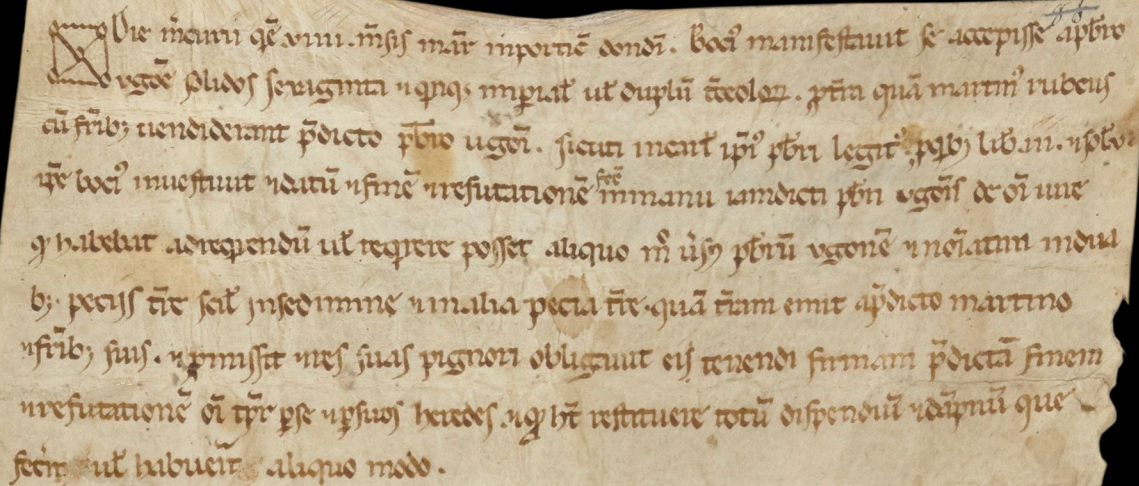 Die m̄curii q̄e .xviii. m̄sis mar̄ inporticū dondī. Bocꝰ manifestauit se accepisse ap̄bro
ugōe solidos sexaginta ⁊ qnqꝫ īnperial̄ ul̄ duplū t̄ceoloꝝ. ꝓt̄ra quā martinꝰ rubeus
cū fr̄ibꝫ uendiderant p̄dicto p̄bro ugōi. sicuti incar̄ ip̄iꝰ p̄bri legit̄. lib̄ .iii. ⁊ sol̄
ip̄e bocꝰ inuestiuit ⁊ datū ⁊ finē ⁊ refutationē fec̄ īnmanu iamdicti p̄bri ugōis de oī iure
qḋ habebat adreq̄rendū ul̄ req̄rere posset aliquo mͦ ūsꝫ p̄brū ugonē ⁊ noīatim indua
bꝫ. pecijs t̄re scil̄ insedimine ⁊ inalia pecia t̄re. quā t̄ram emit ap̄dicto martino
⁊ fr̄ibꝫ suis. ⁊ ꝓmissit ⁊ res suas pignori obligauit eis tenendi firmam p̄dictā finem
⁊ refutationē oī tp̄r ꝑse ⁊ ꝑsuos heredes. ⁊ qḋ h̄t restituere totū dispendiū ⁊ dāpnū que
fecīt ul̄ habuerīt aliquo modo.